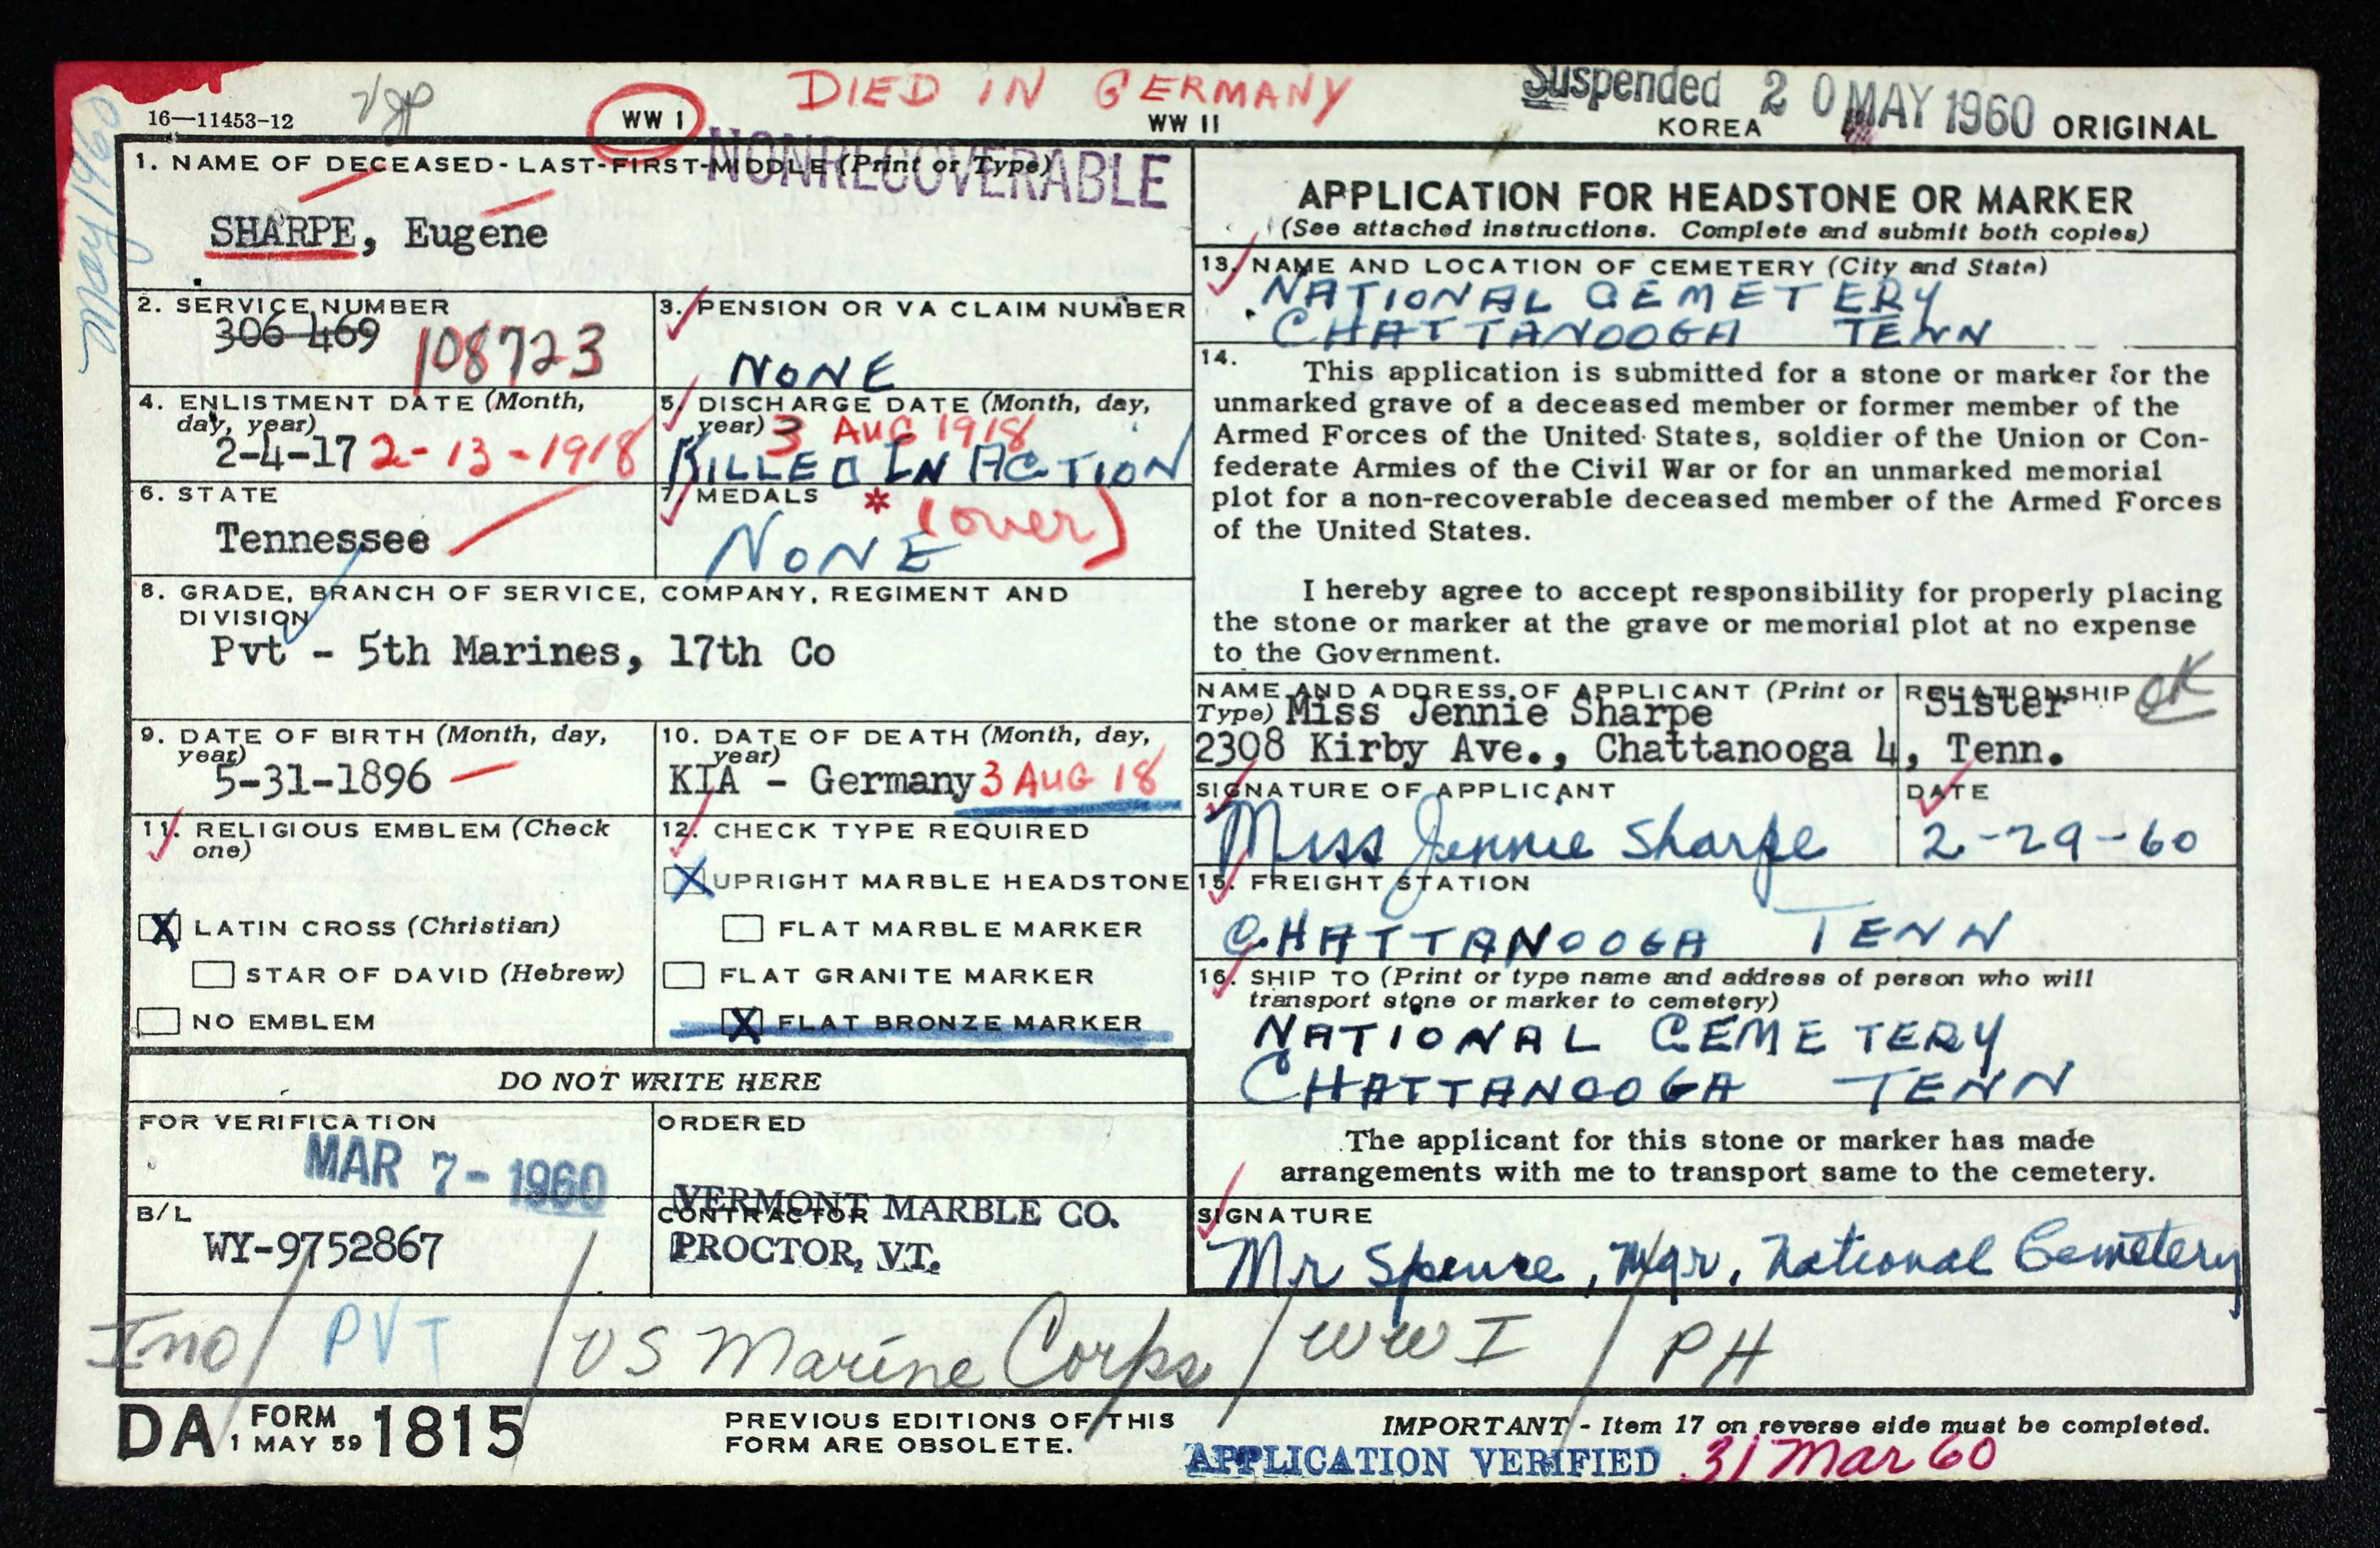 DIED IN GERMANY
Suspended 20 MAY 1960
16—11453-12
WW I
WW II
KOREA
ORIGINAL
May 1960
NONRECOVERABLE
1. NAME OF DECEASED - LAST-FIRST-MIDDLE (Print or Type)
SHARPE, Eugene
2. SERVICE NUMBER
306 469 108723
3. PENSION OR VA CLAIM NUMBER
NONE
4. ENLISTMENT DATE (Month, day, year)
2-4-17 2-13-1918
5. DISCHARGE DATE (Month, day, year) 3 AUG 1918
KILLED IN ACTION
6. STATE
Tennessee
7. MEDALS * (over)
NONE
8. GRADE, BRANCH OF SERVICE, COMPANY, REGIMENT AND
DIVISION
Pvt - 5th Marines, 17th Co
9. DATE OF BIRTH (Month, day, year)
5-31-1896
10. DATE OF DEATH (Month, day, year)
KIA - Germany 3 AUG 18
11. RELIGIOUS EMBLEM (Check one)
X LATIN CROSS (Christian)
STAR OF DAVID (Hebrew)
NO EMBLEM
12. CHECK TYPE REQUIRED
X UPRIGHT MARBLE HEADSTONE
FLAT MARBLE MARKER
FLAT GRANITE MARKER
X FLAT BRONZE MARKER
DO NOT WRITE HERE
FOR VERIFICATION
MAR 7 - 1960
ORDERED
B/L
WY-9752867
CONTRACTOR
VERMONT MARBLE CO.
PROCTOR, VT.
APPLICATION FOR HEADSTONE OR MARKER
(See attached instructions. Complete and submit both copies)
13. NAME AND LOCATION OF CEMETERY (City and State)
NATIONAL CEMETERY
CHATTANOOGA TENN
14.
This application is submitted for a stone or marker for the
unmarked grave of a deceased member or former member of the
Armed Forces of the United States, soldier of the Union or Con-
federate Armies of the Civil War or for an unmarked memorial
plot for a non-recoverable deceased member of the Armed Forces
of the United States.
I hereby agree to accept responsibility for properly placing
the stone or marker at the grave or memorial plot at no expense
to the Government.
NAME AND ADDRESS OF APPLICANT (Print or
Type) Miss Jennie Sharpe
2308 Kirby Ave., Chattanooga 4, Tenn.
RELATIONSHIP OK
Sister
SIGNATURE OF APPLICANT
Miss Jennie Sharpe
DATE
2-29-60
15. FREIGHT STATION
CHATTANOOGA TENN
16. SHIP TO (Print or type name and address of person who will
transport stone or marker to cemetery)
NATIONAL CEMETERY
CHATTANOOGA TENN
The applicant for this stone or marker has made
arrangements with me to transport same to the cemetery.
SIGNATURE
Mr Spence, Mgr, National Cemetery
Ino / PVT / US Marine Corps / WW I / PH
DA FORM 1815
1 MAY 59
PREVIOUS EDITIONS OF THIS
FORM ARE OBSOLETE.
IMPORTANT - Item 17 on reverse side must be completed.
APPLICATION VERIFIED 31 Mar 60